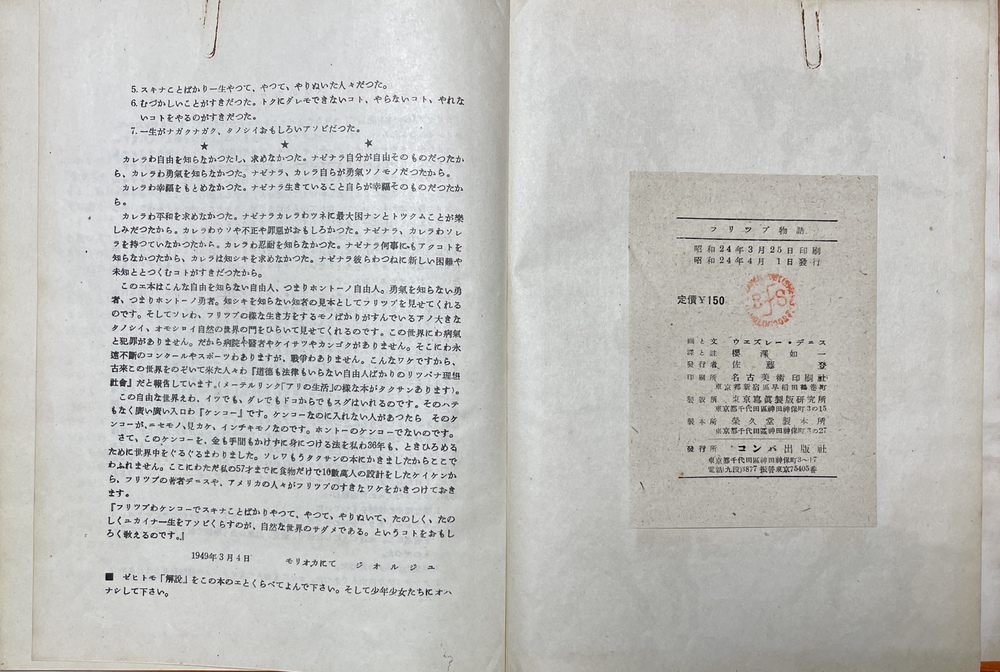 5. スキナことばかり一生やつて、やつて、やりぬいた人々だつた。
6. むづかしいことがすきだつた。トクにダレモできないコト、やらないコト、やれな
いコトをやるのがすきだつた。
7. 一生がナガクナガク、タノシイおもしろいアソビだつた。
★ ★ ★
カレラわ自由を知らなかつたし、求めなかつた。ナゼナラ自分が自由そのものだつたか
ら、カレラわ勇氣を知らなかつた。ナゼナラ、カレラ自らが勇氣ソノモノだつたから。
カレラわ幸福をもとめなかつた。ナゼナラ生きていること自らが幸福そのものだつたか
ら。
カレラわ平和を求めなかつた。ナゼナラカレラわツネに最大困ナンとトツクムことが樂
しみだつたから。カレラわウソや不正や罪惡がおもしろかつた。ナゼナラ、カレラわソレ
ラを持つていなかつたから。カレラわ忍耐を知らなかつた。ナゼナラ何事にもアクコトを
知らなかつたから、カレラは知シキを求めなかつた。ナゼナラ彼らわつねに新しい困難や
未知ととつくむコトがすきだつたから。
このエ本はこんな自由を知らない自由人、つまりホントーノ自由人。勇氣を知らない勇
者、つまりホントーノ勇者。知シキを知らない知者の見本としてフリツプを見せてくれる
のです。そしてソレわ、フリツプの様な生き方をするモノばかりがすんでいるアノ大きな
タノシイ、オモシロイ自然の世界の門をひらいて見せてくれるのです。この世界にわ病氣
と犯罪がありません。だから病院や醫者やケイサツやカンゴクがありません。そこにわ永
遠不斷のコンクールやスポーツわありますが、戰争わありません。こんなワケですから、
古来この世界をのぞいて来た人々わ『道德も法律もいらない自由人ばかりのリツバナ理想
社會』だと報告しています。(メーテルリンク「アリの生活」の様な本がタクサンあります)。
この自由な世界えわ、イツでもゝダレでもドコからでもスグはいれるのです。そのハテ
もなく廣い廣い入口わ『ケンコー』です。ケンコーなのに入れない人があつたら そのケ
ンコーが、ニセモノ、見カケ、インチキモノなのです。ホントーのケンコーでないのです。
さて、このケンコーを、金も手間もかけずに身につける法を私わ36年も、ときひろめる
ために世界中をぐるぐるまわりました。ソレワもうタクサンの本にかきましたからここで
わふれません。ここにわただ私の57才までに食物だけで10數萬人の設計をしたケイケンか
ら、フリツプの著者デニスや、アメリカの人々がフリツプのすきなワケをかきつけておき
ます。
『フリツプわケンコーでスキナことばかりやつて、やつて、やりぬいて、たのしく、たの
しくユカイナ一生をアソビくらすのが、自然な世界のサダメである。というコトをおもし
ろく敎えるのです。』
1949年3月4日 モリオカにて ジオルジユ
■ ゼヒトモ「解說」をこの本のエとくらべてよんで下さい。そして少年少女たちにオハ
ナシして下さい。
フリツプ物語
昭和24年3月25日印刷
昭和24年4月1日發行
定價¥150
畫と文 ウエズレー・デニス
譯と註 櫻澤如一
發行者 佐藤登
印刷所 名古美術印刷社
東京都新宿區早稻田鶴巻町
製版所 東京寫眞製版研究所
東京都千代田區神田神保町3の15
製本所 榮久堂製本所
東京都千代田區神田神保町3の27
發行所 コンパ出版社
東京都千代田區神田神保町3〜17
電話(九段)3877 振替東京75405番